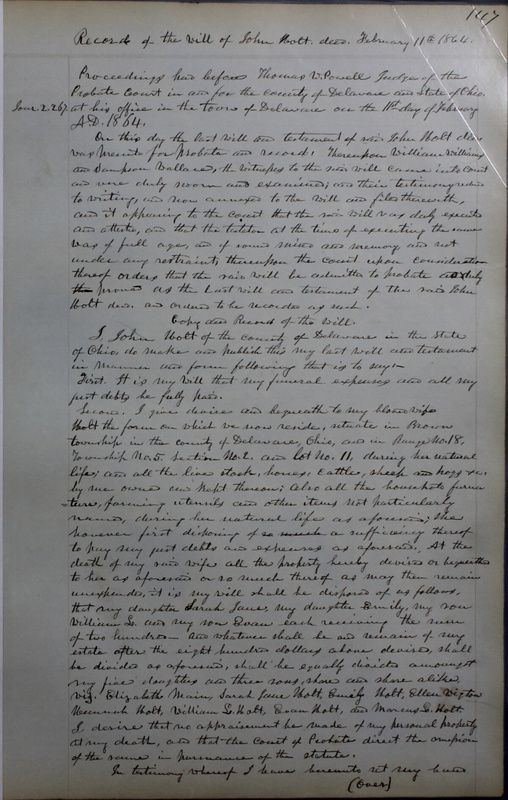 147
Record of the Will of John Holt. decd. February 11th 1864.
Proceedings had before Thomas W. Powell Judge of the
Probate Court in and for the County of Delaware and State of Ohio
Jour. 2.267. at his office in the town of Delaware on the 11th day of February
A.D. 1864.
On this day the last will and testament of said John Holt decd
was presented for probate and record: Thereupon William Williams
and Sampson Wallace, the witnesses to the said will came into Court
and were duly sworn and examined; and their testimony reduced
to writing, and now annexed to the will and filed therewith,
and it appearing to the Court that the said will was duly executed
and attested, and that the testator at the time of executing the same
was of full age, and of sound mind and memory and not
under any restraint; thereupon the Court upon consideration
thereof orders that the said will be admitted to probate as duly
proven as the last will and testament of the said John
Holt decd. and ordered to be recorded as such.
Copy and Record of the Will
I, John Holt of the county of Delaware in the State
of Ohio, do make and publish this my last will and testament
in manner and form following that is to say:-
First. It is my will that my funeral expenses and all my
just debts be fully paid.
Second. I give devise and bequeath to my beloved wife
Holt the farm on which we now reside, situate in Brown
township in the county of Delaware, Ohio, and in Range No. 18,
Township No. 5, Section No. 2. and Lot No. 11, during her natural
life; and all the live stock, horses, cattle, sheep and hogs &c.
by me owned and kept thereon; Also all the household furni
ture, farming utensils and other items not particularly
named, during her natural life as aforesaid; she
however first disposing of so much a sufficiency thereof
to pay my just debts and expenses as aforesaid. At the
death of my said wife all the property hereby devised or bequeathed
to her as aforesaid or so much thereof as may then remain
unexpended, it is my will shall be disposed of as follows.
that my daughter Sarah Jane, my daughter Emily, my son
William S. and my son Evan each receiving the sum
of two hundred and whatever shall be and remain of my
estate after the eight hundred dollars above devised, shall
be divided as aforesaid, shall be equally divided amongst
my five daughters and three sons, share and share alike
viz. Elizabeth Main, Sarah Jane Holt, Emily Holt, Ellen
Holt, William S. Holt, Evan Holt, and Marcus S. Holt.
I desire that no appraisement be made of my personal property
at my death, and that the Court of Probate direct the omission
of the same in pursuance of the statute.
In testimony whereof I have hereunto set my hand
(Over)